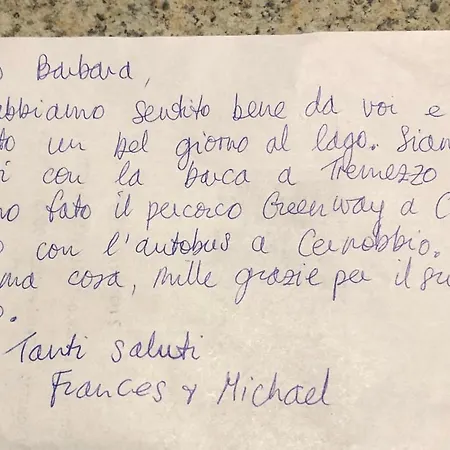 Barbara,
abbiamo sentito bene da voi e
un bel giorno al lago. Siam
con la barca a Tremezzo
fato il percorco Greenway a C
con l'autobus a Cernobbio.
ma cosa, mille grazie per il
Tanti saluti
Frances & Michael